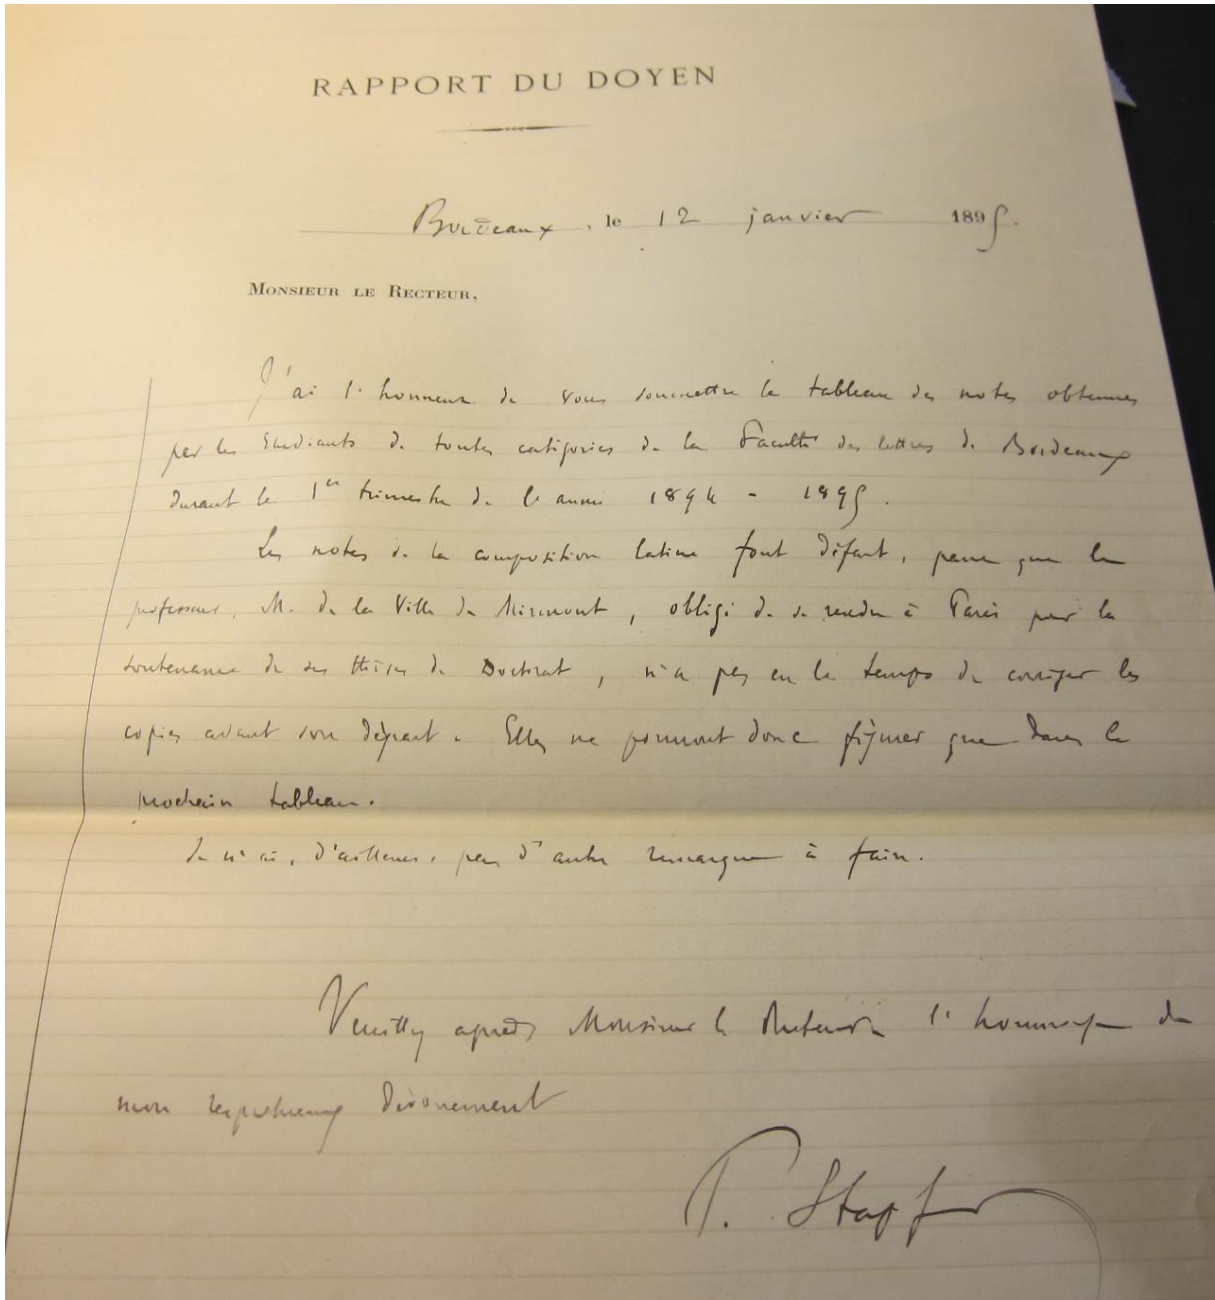 RAPPORT DU DOYEN
Bordeaux, le 12 janvier 1895.
MONSIEUR LE RECTEUR,
J'ai l'honneur de vous soumettre le tableau des notes obtenues
par les Etudiants de toutes catégories de la Faculté des lettres de Bordeaux
durant le 1er trimestre de l'année 1894 - 1895.
Les notes de la composition latine font défaut, parce que le
professeur, M. de la Ville de Mirmont, obligé de se rendre à Paris pour la
soutenance de ses thèses de Doctorat, n'a pas eu le temps de corriger les
copies avant son départ. Elles ne pourront donc figurer que dans le
prochain tableau.
Je n'ai, d'ailleurs, pas d'autre remarque à faire.
Veuillez agréer Monsieur le Recteur l'hommage de
mon respectueux dévouement
P. Stapfer